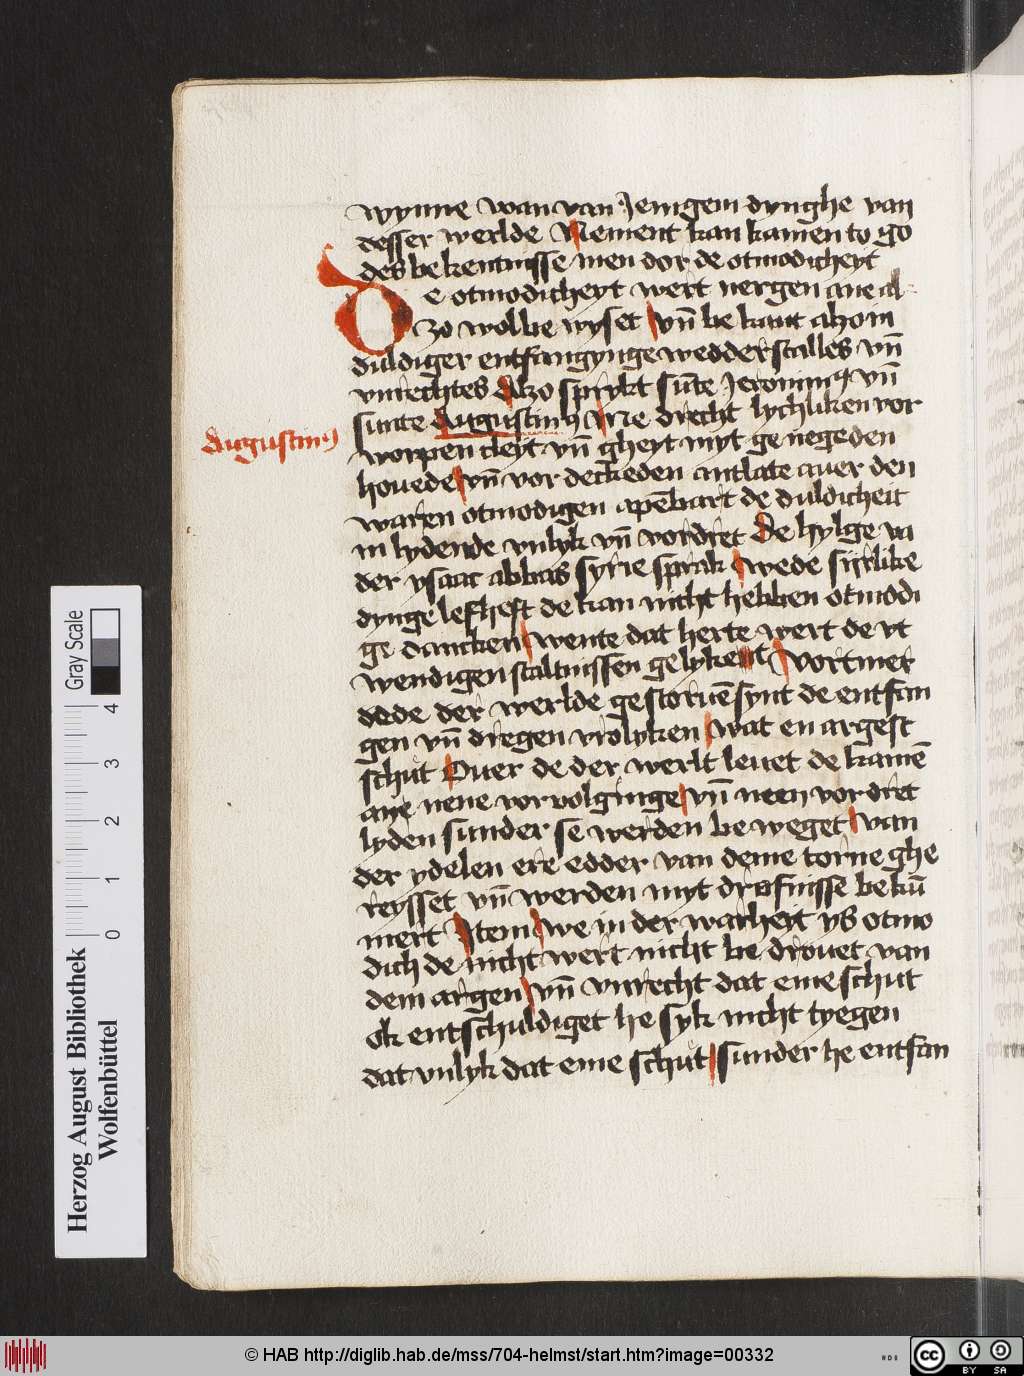 wynne wan van Jenigem dynghe van
desser werlde Nement kan kamen to go
des bekentnisse men dor de otmodicheyt
De otmodicheyt wert nergen ane al
zo wol be wyset vn̄ be kant alzo in
duldiger entfangynge wedderstalles vn̄
vnrechtes Alzo sprykt sūte Jeronimꝰ vn̄
sunte Augustinꝰ Ne drecht lychliken vor
Augustinꝰ
worpen cleyt vn̄ gheyt myt ge negeden
houede vn̄ vor deckeden antlate auer den
waren otmodigen apēbart de duldicheit
in lydende vnlyk vn̄ vordret De hylge va
der ysaac abbas syrie sprak wede sijrlike
dynge lefheft de kan nicht hebben otmodi
ge dancken wente dat herte wert de vt
wendigen staltnissen ge lykent vortmer
dede der werlde gestoruē synt de entfan
gen vn̄ dregen vrolyken wat en argest
schut Ouer de der werlt leuet de kamē
ane nene vorvolginge vn̄ neen vordret
lyden sunder se werden be weget van
der ydelen ere edder van deme torne ghe
reysset vn̄ werden myt drofnisse bekū
mert Item we in der warheyt ys otmo
dich de nicht wert nicht be drouet van
dem argen vn̄ vnrecht dat eme schut
ok entschuldiget he syk nicht tyegen
dat vnlyk dat eme schut sunder he entfan
Gray Scale
0 1 2 3 4
Herzog August Bibliothek
Wolfenbüttel
© HAB http://diglib.hab.de/mss/704-helmst/start.htm?image=00332
cc BY SA